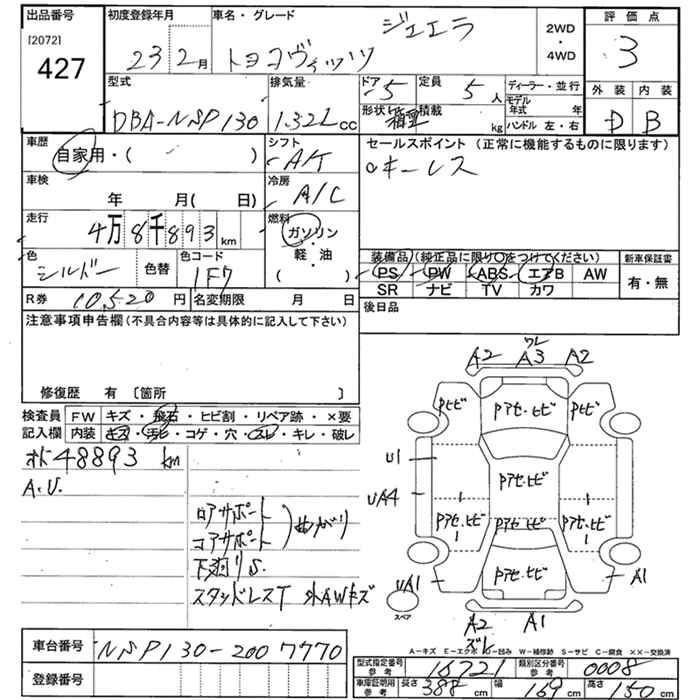 出品番号 [2072] 427
初度登録年月 23 2月
車名・グレード トヨタヴィッツ ジュエラ
2WD・4WD
評価点 3
外装 D 内装 B
型式 DBA-NSP130
排気量 1.32L cc
ドア 5
形状 箱型
定員 5人
積載 kg
ディーラー・並行
モデル年式 年
ハンドル 左・右
車歴 自家用・( )
シフト A/T
車検 年 月( 日)
冷房 A/C
走行 4万8千893km
燃料 ガソリン・軽油 ( )
色 シルバー
色替
色コード 1F7
R券 10,520円
名変期限 月 日
セールスポイント (正常に機能するものに限ります)
キーレス
装備品 (純正品に限り○をつけてください)
PS PW ABS エアB AW
SR ナビ TV カワ
新車保証書
有・無
後日品
注意事項申告欄 (不具合内容等は具体的に記入して下さい)
修復歴 有 〔箇所 〕
検査員記入欄
FW キズ・飛石・ヒビ割・リペア跡・×要
内装 キズ・汚レ・コゲ・穴・スレ・キレ・破レ
48893 km
A.U.
ロアサポート
コアサポート
曲がり
下廻りS.
スタッドレスT 外AWキズ
A2 ワレ A3 A2
U1
UA4
UA1
A1
A2 ズレ A1
スペア
A-キズ E-エクボ U-凹み W-補修跡 S-サビ C-腐食 ××-交換済
車台番号 NSP130-2007770
登録番号
型式指定番号 参考 16721
類別区分番号 参考 0008
車庫証明用 参考 長さ 388cm 幅 169cm 高さ 150cm